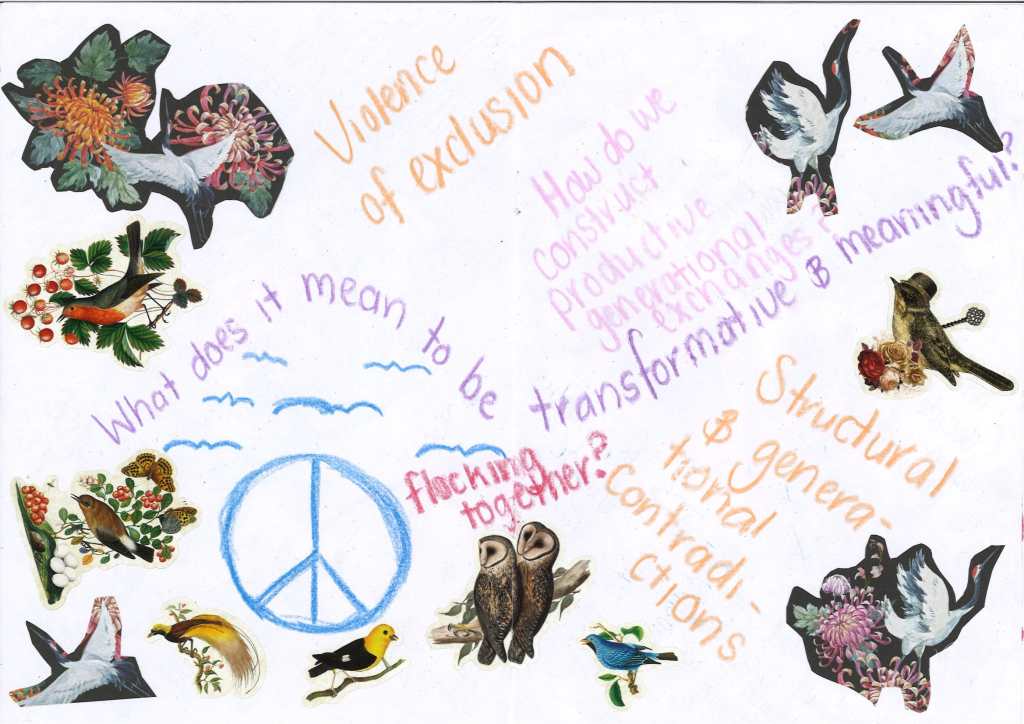 Violence
of exclusion
How do we
construct
productive
generational
exchanges?
What does it mean to be transformative & meaningful?
flocking
together?
Structural
& genera-
tional
contradi-
ctions